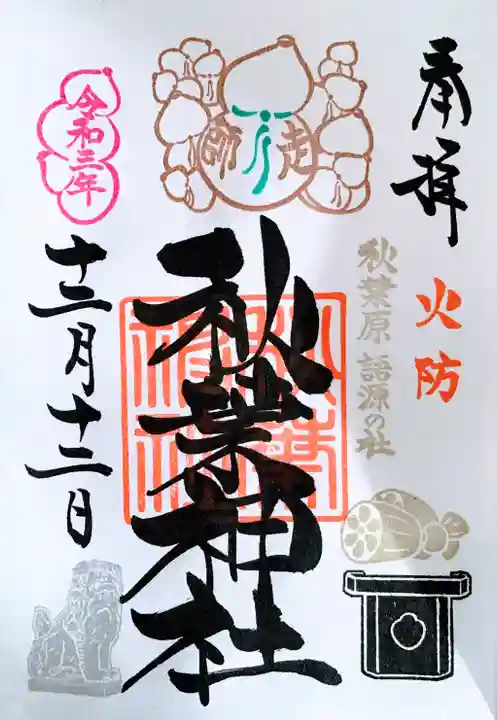 奉拝
火防
秋葉原 語源の社
走師
秋葉神社
令和三年
十二月十二日